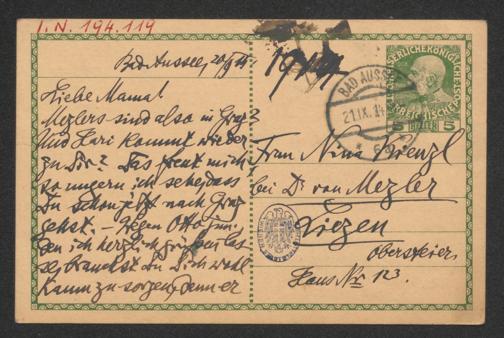 I. N. 194.119
Bad Aussee, 20/9 14.
Liebe Mama!
Mezlers sind also in Graz?
Und Hari kommt wieder
zu Dir? Das freut mich,
so ungern ich sehe, dass
Du schon jetzt nach Graz
gehst. – Wegen Otto jun.,
den ich herzlich grüßen las-
se, brauchst Du Dich wohl
kaum zu sorgen, denn er
1914
BAD AUSSEE
21.IX.14
5 HELLER 5
Frau Nina Kienzl
bei Dr von Mezler
Liezen
Obersteier.
Haus Nr 123.